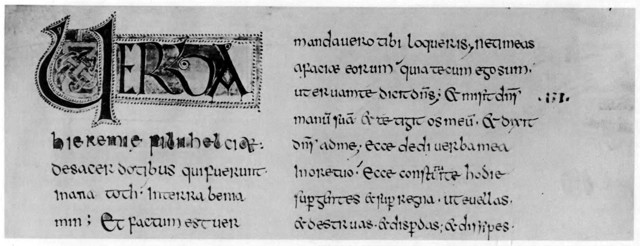 UERBA
hieremie filii helciae:
desacer dotibus quifuerunt
inana toth; interra benia
min; Et factum est uer
mandauero tibi loqueris; netimeas
afaciae eorum quia tecum ego sum.
ut eruamte dicit dn̄s; & misit dn̄s .iii.
manū suā & tetigit os meū. & dixit
dn̄s adme; ecce dedi uerba mea
inoretuo; Ecce constitui te hodie
sup̄ gentes & sup̄ regna. ut euellas.
& destruas. & disp̄das; & dissipes.